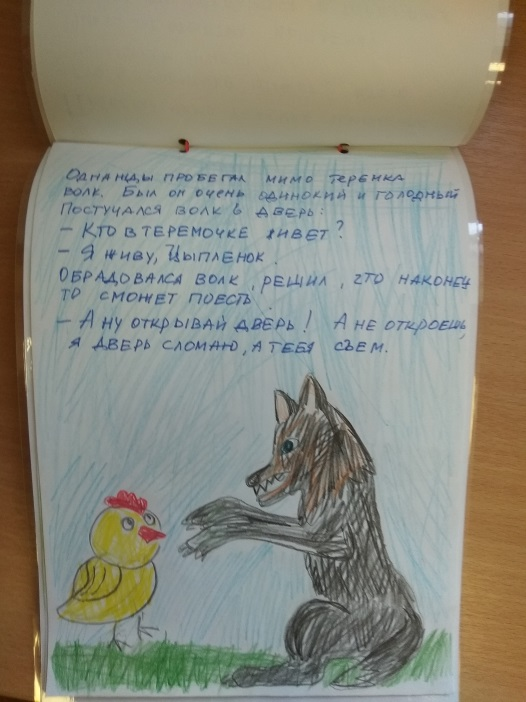 Однажды пробегал мимо теремка
волк. Был он очень одинокий и голодный
Постучался волк в дверь:
– Кто в теремочке живет?
– Я живу, Цыпленок.
Обрадовался волк, решил, что наконец
то сможет поесть.
– А ну открывай дверь! А не откроешь,
я дверь сломаю, а тебя съем.